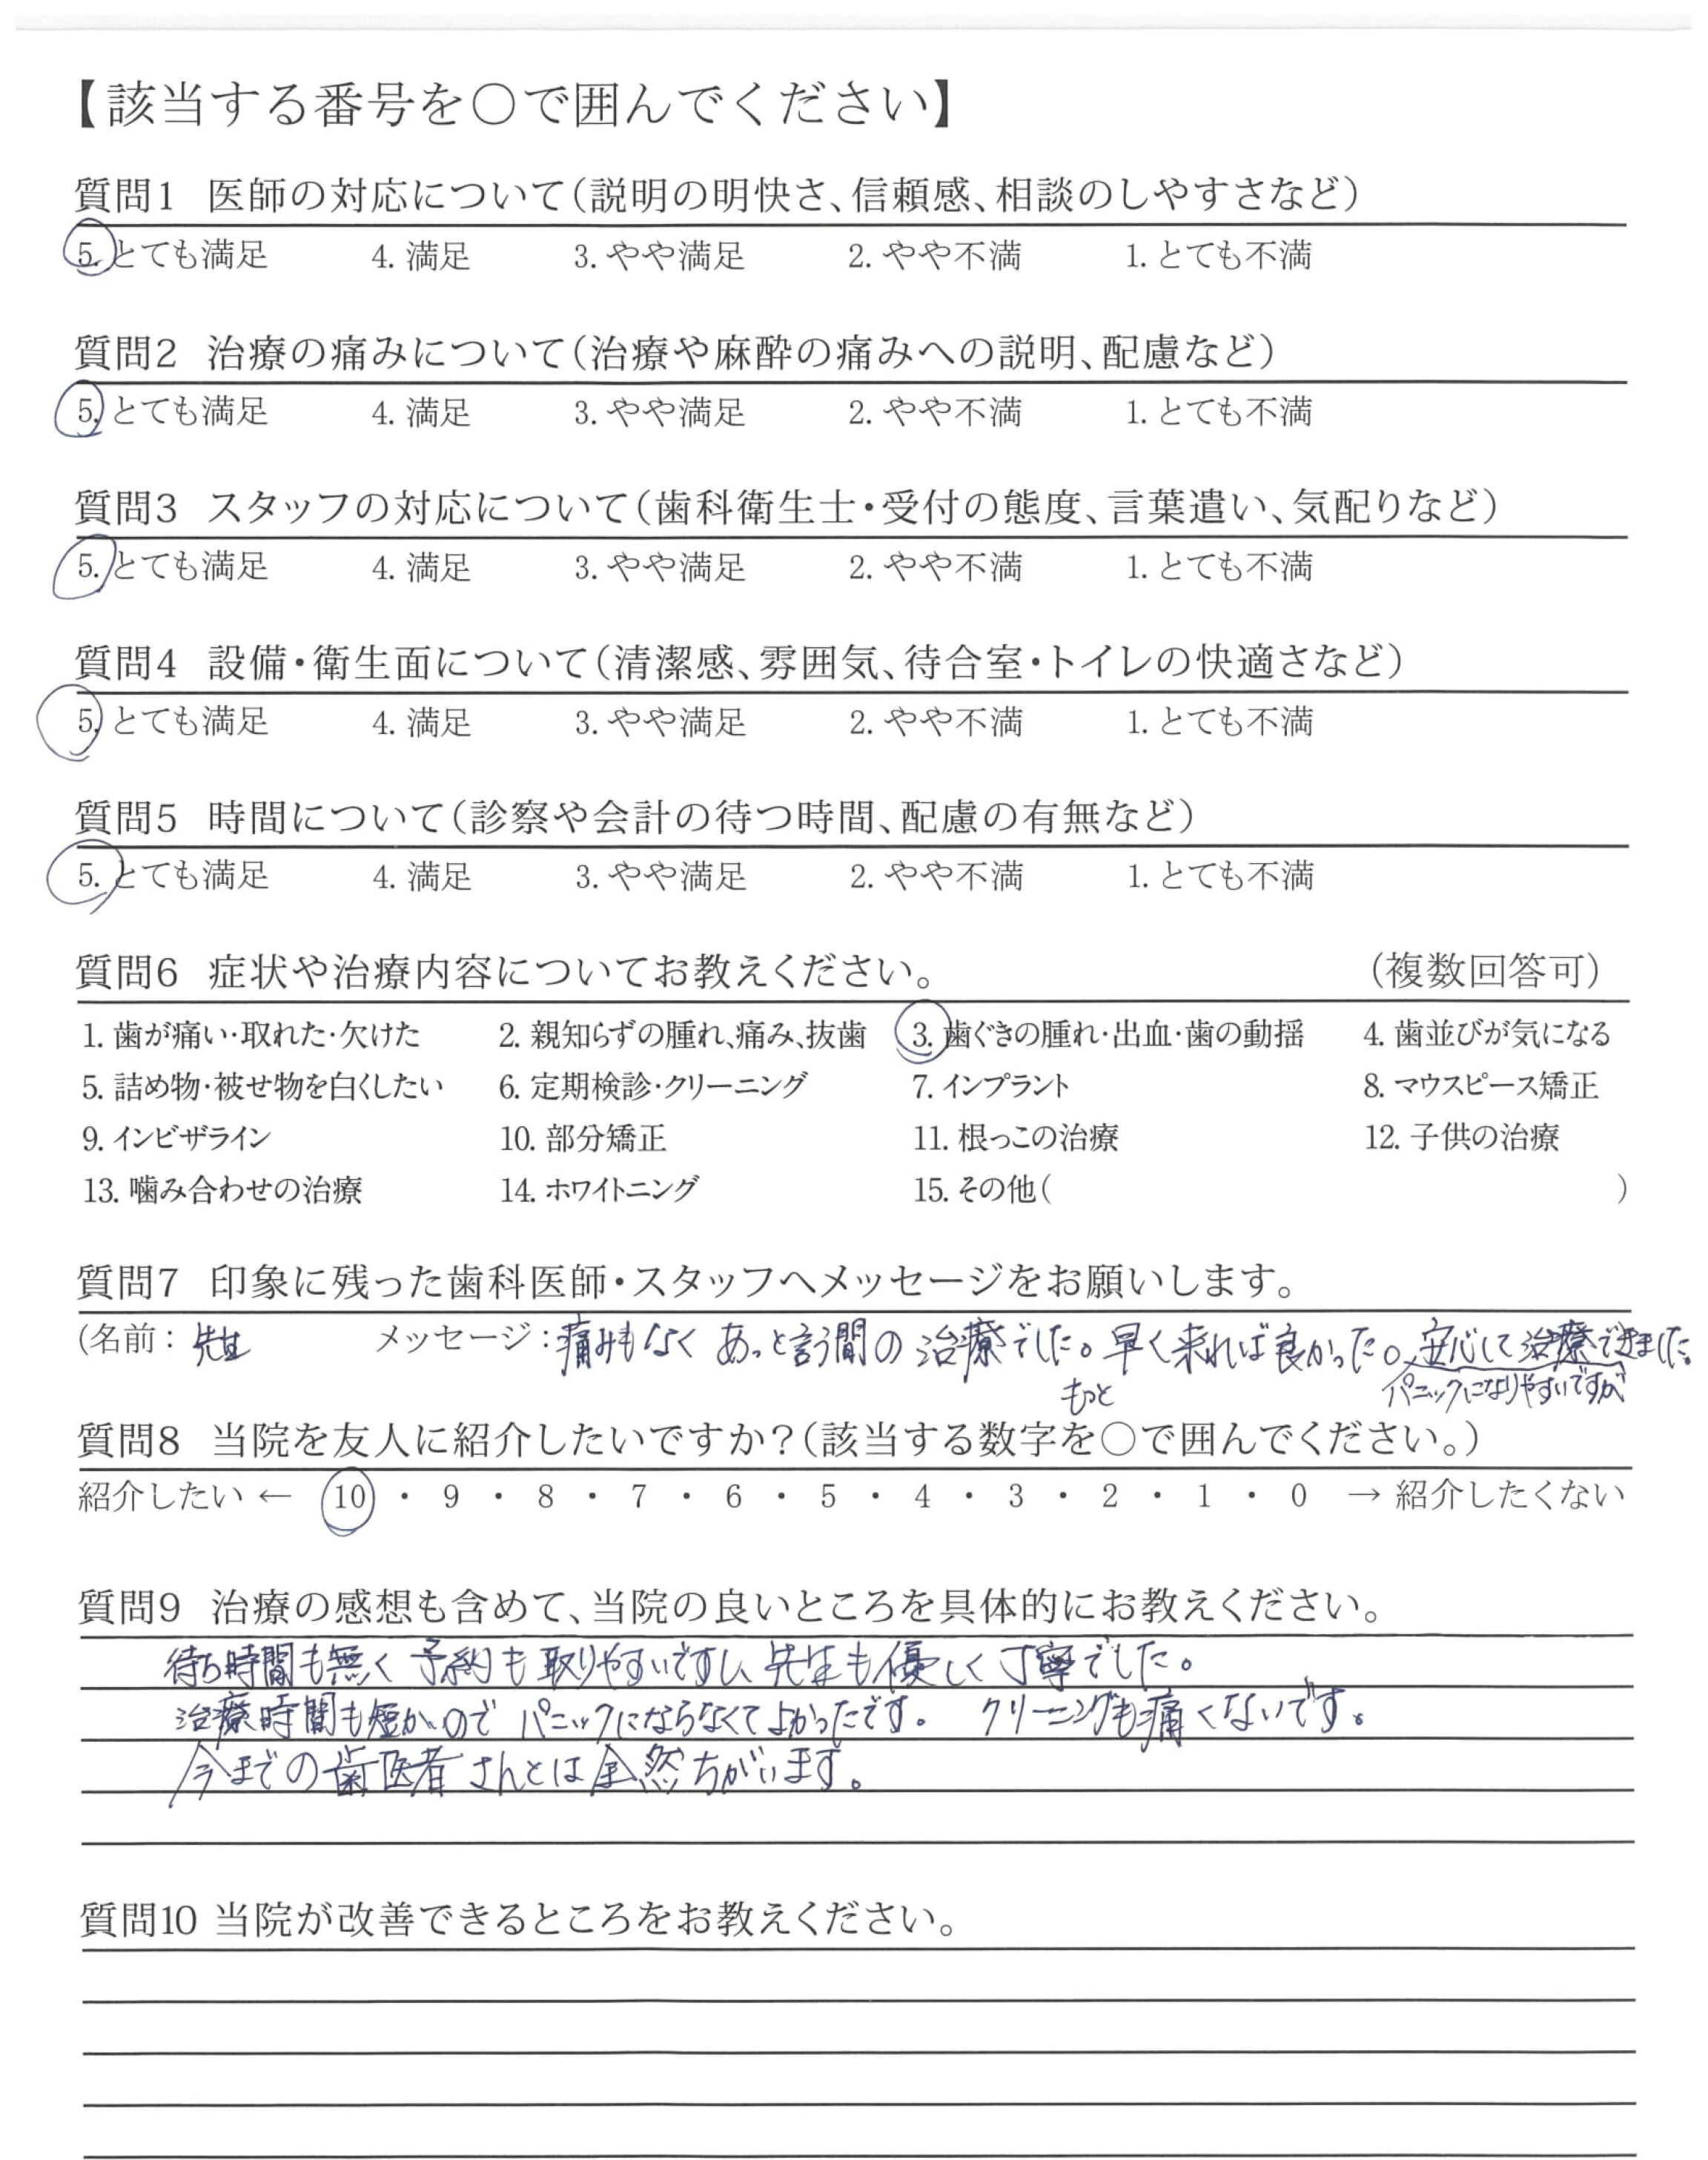 【該当する番号を○で囲んでください】
質問1 医師の対応について(説明の明快さ、信頼感、相談のしやすさなど)
5. とても満足 4. 満足 3. やや満足 2. やや不満 1. とても不満
質問2 治療の痛みについて(治療や麻酔の痛みへの説明、配慮など)
5. とても満足 4. 満足 3. やや満足 2. やや不満 1. とても不満
質問3 スタッフの対応について(歯科衛生士・受付の態度、言葉遣い、気配りなど)
5. とても満足 4. 満足 3. やや満足 2. やや不満 1. とても不満
質問4 設備・衛生面について(清潔感、雰囲気、待合室・トイレの快適さなど)
5. とても満足 4. 満足 3. やや満足 2. やや不満 1. とても不満
質問5 時間について(診察や会計の待つ時間、配慮の有無など)
5. とても満足 4. 満足 3. やや満足 2. やや不満 1. とても不満
質問6 症状や治療内容についてお教えください。 (複数回答可)
1. 歯が痛い・取れた・欠けた 2. 親知らずの腫れ、痛み、抜歯 3. 歯ぐきの腫れ・出血・歯の動揺 4. 歯並びが気になる
5. 詰め物・被せ物を白くしたい 6. 定期検診・クリーニング 7. インプラント 8. マウスピース矯正
9. インビザライン 10. 部分矯正 11. 根っこの治療 12. 子供の治療
13. 噛み合わせの治療 14. ホワイトニング 15. その他( )
質問7 印象に残った歯科医師・スタッフへメッセージをお願いします。
(名前: 先生 メッセージ: 痛みもなく あっと言う間の 治療でした。早く来れば良かった。安心して治療できました。
もっと パニックになりやすいですが
質問8 当院を友人に紹介したいですか?(該当する数字を○で囲んでください。)
紹介したい ← 10 ・ 9 ・ 8 ・ 7 ・ 6 ・ 5 ・ 4 ・ 3 ・ 2 ・ 1 ・ 0 → 紹介したくない
質問9 治療の感想も含めて、当院の良いところを具体的にお教えください。
待ち時間も無く 予約も取りやすいですし、先生も優しく丁寧でした。
治療時間も短かいので パニックにならなくてよかったです。 クリーニングも痛くないです。
今までの歯医者さんとは全然ちがいます。
質問10 当院が改善できるところをお教えください。